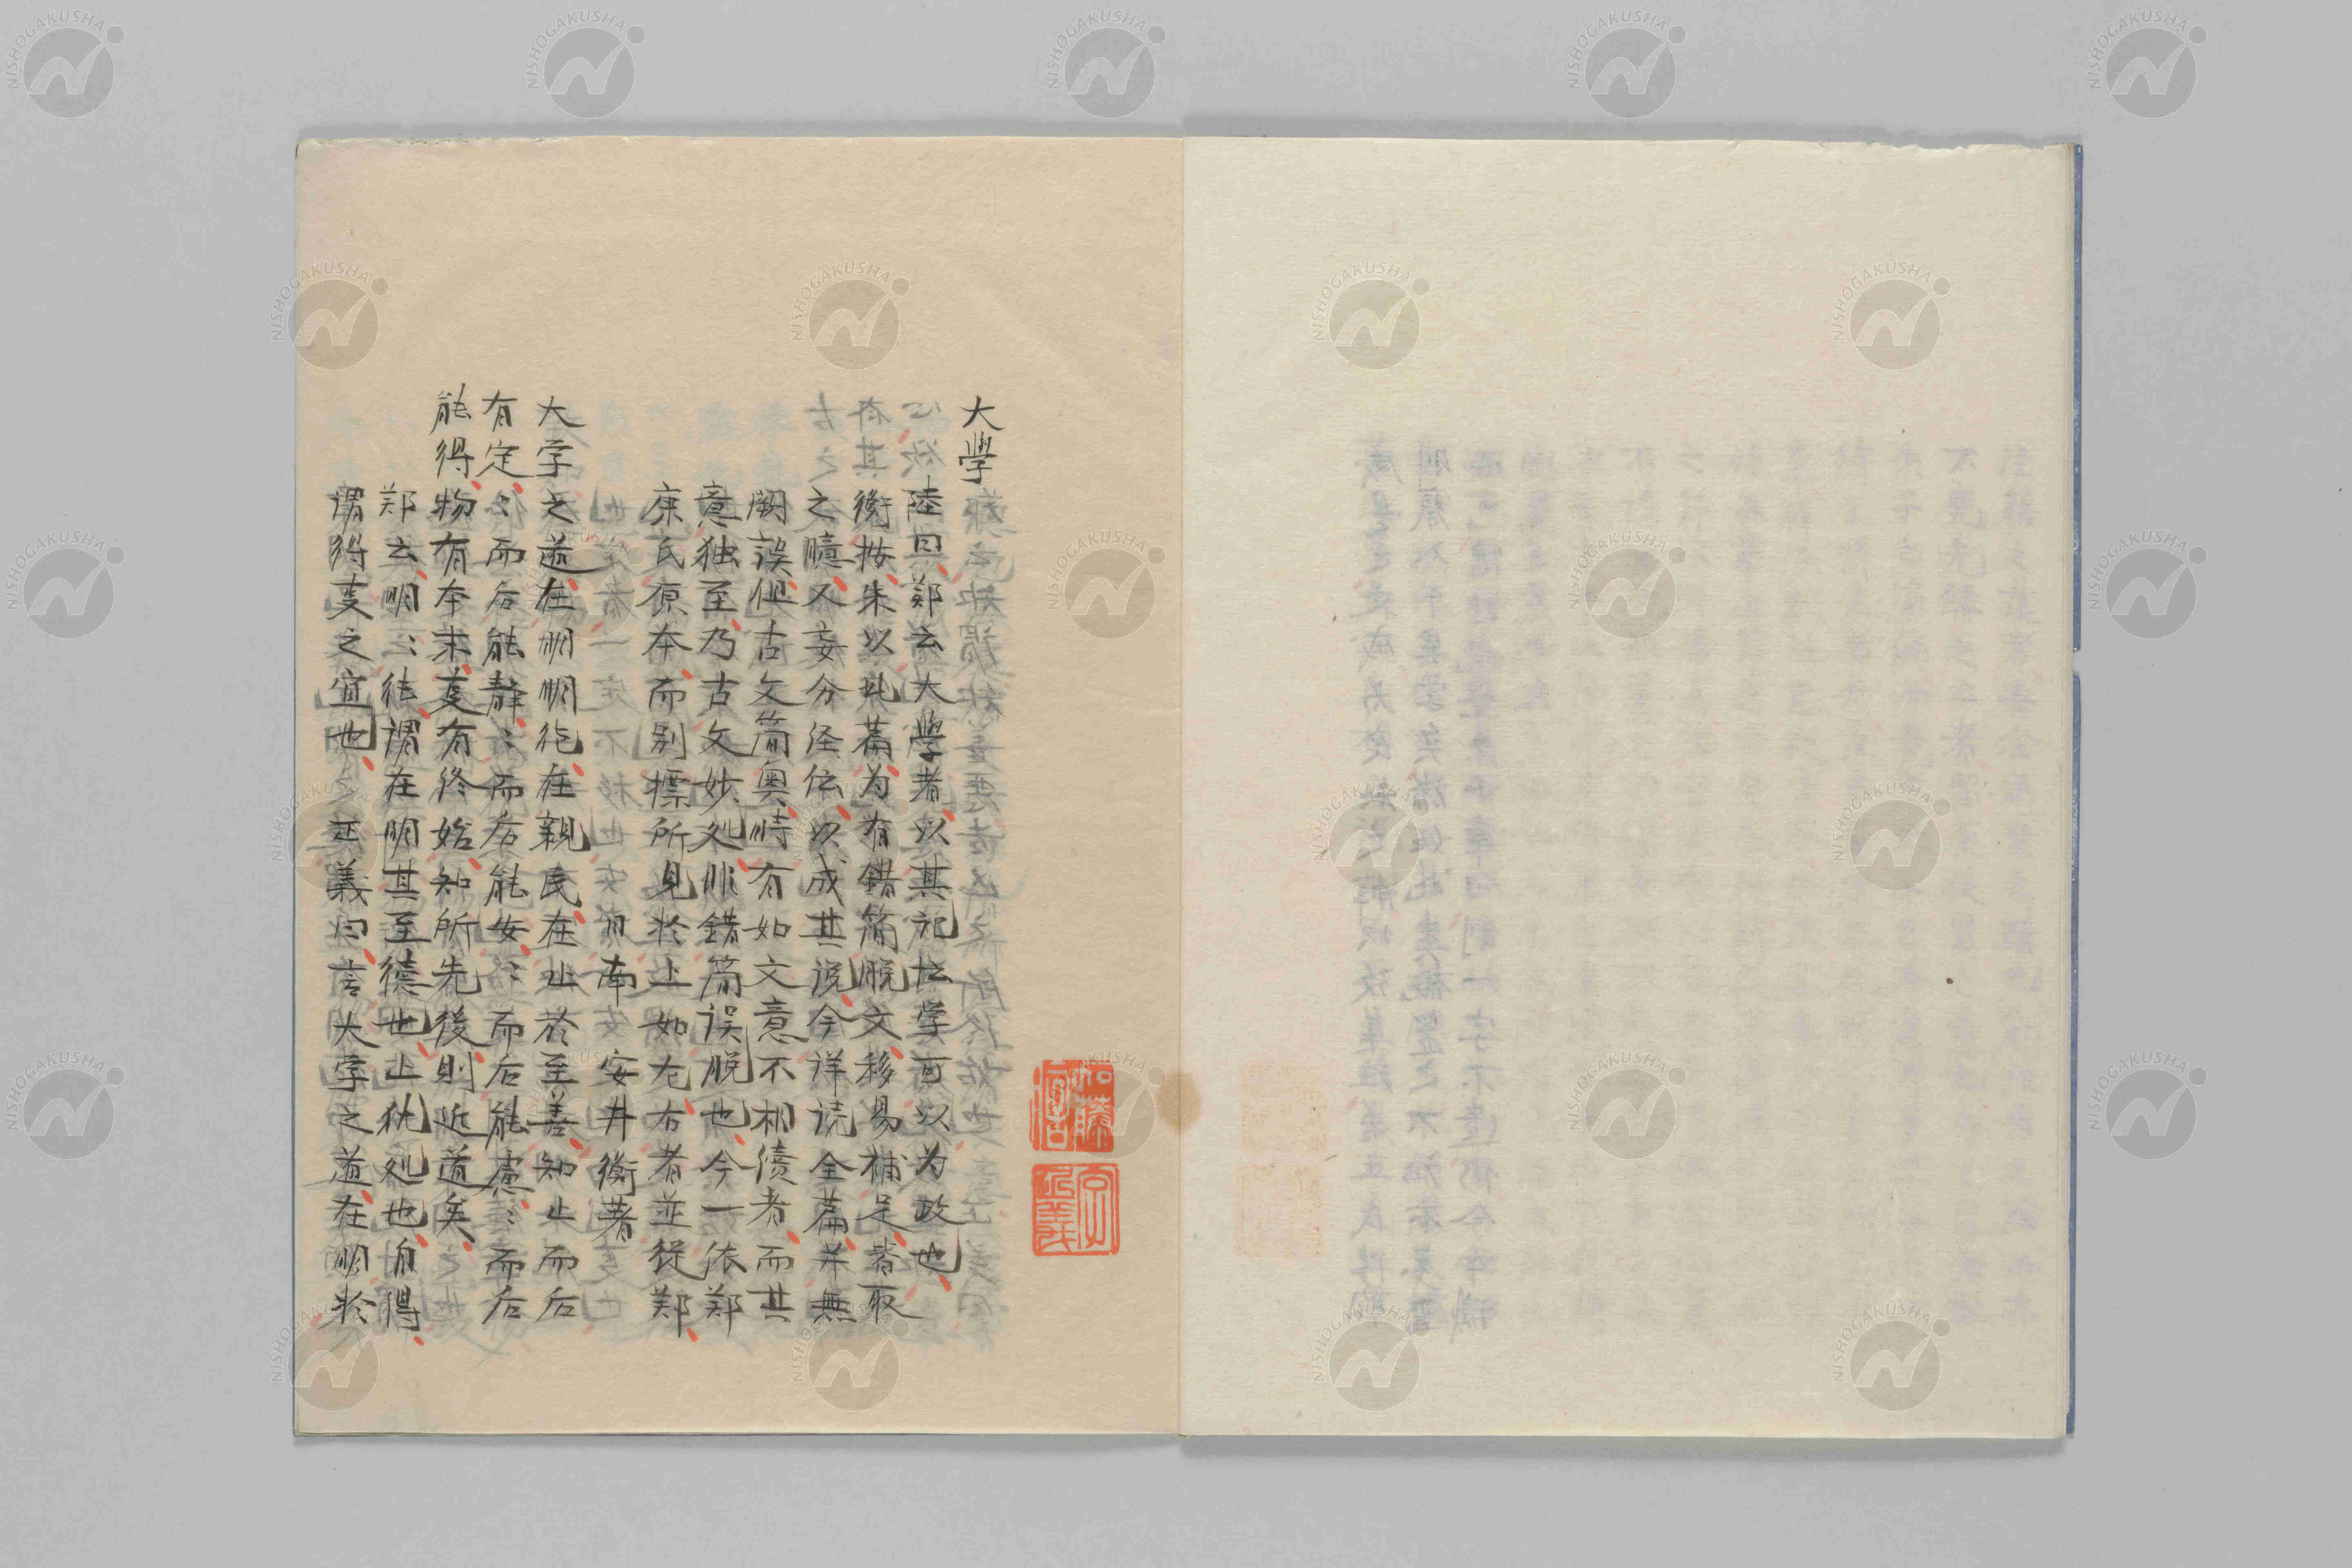 大學
陸曰鄭云大學者以其記博学可以为政也
衡按朱以此篇为有錯簡脱文移易補足皆取
之臆又妄分経伝以成其説今详读全篇并無
闕誤但古文简奥時有如文意不相续者而其
意独至乃古文妙处非錯簡误脱也今一依郑
康氏原本而别標所見於上如左右者並從郑
日南 安井衡著
大学之道在明明徳在親民在止於至善知止而后
有定〻而后能静〻而后能安〻而后能慮〻而后
能得物有本末事有终始知所先後則近道矣
郑云明〻徳謂在明其至德也止犹处也自得
謂得事之宜也 正義曰言大学之道在明於
加藤
NISHOGAKUSHA